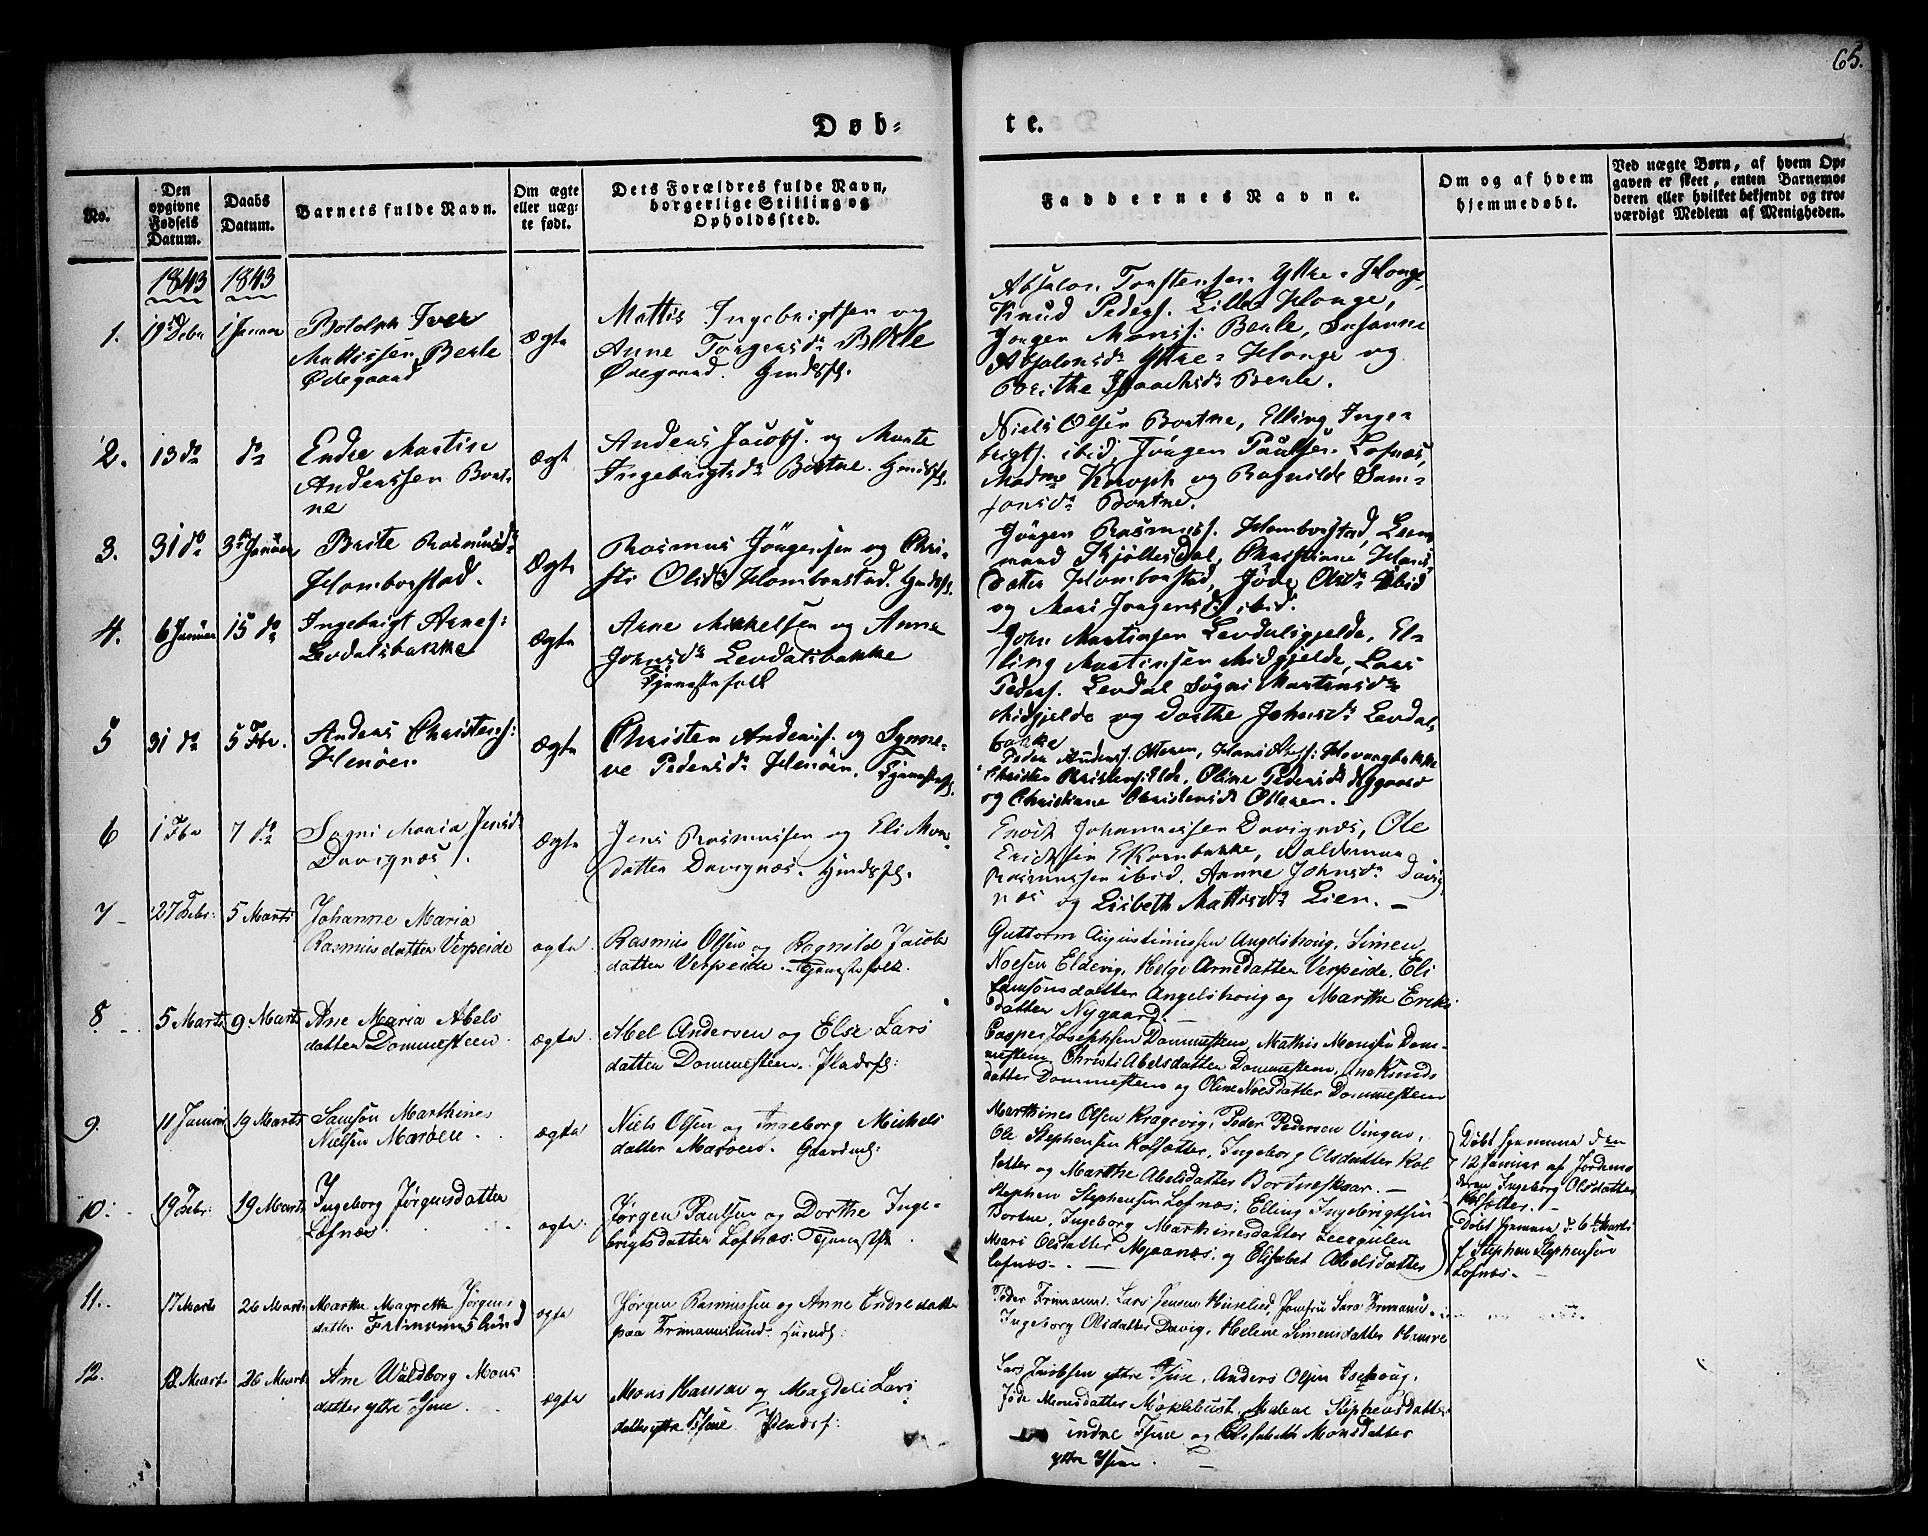 65.
Døb-
te.
No.
Den opgivne Fødsels Datum.
Daabs Datum.
Barnets fulde Navn.
Om ægte eller uægte født.
Dets Forældres fulde Navn, borgerlige Stilling og Opholdssted.
Faddernes Navne.
Om og af hvem hjemmedøbt.
Ved uægte Børn, af hvem Opgaven er skeet, enten Barnemoderen eller hvilket bekjendt og troværdigt Medlem af Menigheden.
1843
1843
1.
19 Debr
1 Januar
Bodolph Iver
Mattissen Berle
Ødegaard
Ægte
Mattis Ingebrigtsen og
Anne Torgersdr Berle
Ødegaard. Huusf.
Absalon Torstensen Yttre-Houge,
Knud Peders. Lille Houge,
Jørgen Monss: Berle, Susanne
Absalonsdr Yttre-Houge og
Brithe Isaachsdr Berle.
2.
13 do
do
Endre Martin
Anderssen Bort-
ne
Ægt
Anders Jacobs. og Marte
Ingebrigtsdr Bortne.
Niels Olsen Bortne, Elling Inge-
brigts. ibid, Jörgen Paulsen Lofnæs,
Madme Knoph og Ragnilde Sam-
sonsdr Bortne.
3.
31 do
3 Januar
Brite Rasmusdr
Homborstad.
Ægte
Rasmus Jörgensen og Chri-
sti Olsdr Homborstad.
Jörgen Rasmuss. Hombostad,
mand Kjöllesdal, Christiane Hans-
datter Homborstad, Jöde Olsdr ibid
og Mari Jörgensdr ibid.
4.
6 Januar
15 do
Ingebrigt Arnes:
Levdalsbakke
Ægte
Arne Mikkelsen og Anne
Johnsdr Levdalsbakke
Tjenestefolk
John Martinsen Levdalsgjelde, El-
ling Martinsen Midgjelde, Lars
Peders. Levdal Søgni Martensdr
Midgjelde og Dorthe Johnsdr Levdals
bakke
5
31 do
5 Fbr.
Anders Christens:
Henöen
Ægte
Christen Anders. og Synne-
ve Pedersdr Henöen.
Peder Anders. Otteren,
Christen Christens. Ilde, Oline Pedersdr Nygaard
og Christiane Christensdr Otteren.
6
1 Fbr
7 do
Søgni Maria Jensd
Davignæs.
Ægte
Jens Rasmussen og Eli Mons
datter Davignæs.
Enock Johannessen Davignæs, Ole
Ericksen Kornbakke, Waldemar
Rasmussen ibid. Anne Johnsdr Davig
næs og Lisbeth Mattisdr Lien.
7
27 Febr:
5 Marts
Johanne Maria
Rasmusdatter Verpeide
ægte.
Rasmus Olsen og Ragnild Jacobs
datter Verpeide. Tjenestefolk.
Guttorm Augustinussen Angelshoug, Simen
Noesen Eldevig, Helge Arnedatter Verpeide, Eli
Samsonsdatter Angelshoug og Marthe Eriks
datter Nygaard.
8.
5 Marts
9 Marts
Ane Maria Abels
datter Dommesteen.
ægte.
Abel Andersen og Else Lars
datter Dommesteen. Pladsf:
Casper Josephsen Dommesteen, Mathis Monsen Dom-
mesteen, Christi Abelsdatter Dommesteen, Ane Knuds
datter Dommesteen og Oline Noesdatter Dommesteen
9.
11 Januar
19 Marts
Samson Marthines
Nielsen Marøen.
ægte
Niels Olsen og Ingeborg Mickels
datter Marøen. Gaardm:
Marthines Olsen Kragevig, Peder Pedersen Vingen,
Ole Stephensen Kolsætter, Ingeborg Olsdatter Kol
sætter og Marthe Abelsdatter Bortneskaar.
Døbt hjemme den
12 Januar af Jordemo
deren Ingeborg Olsdatter
Kolsætter.
10.
19 Febr:
19 Marts
Ingeborg Jørgensdatter
Lofnæs.
ægte.
Jørgen Paulsen og Dorthe Inge-
brigtsdatter Lofnæs: Tjenestfk.
Stephen Stephensen Lofnæs, Elling Ingebrigtsen
Bortne, Ingeborg Marthinesdatter Leergulen
Mari Olsdatter Myranæs, og Elisabet Abelsdatter
Lofnæs.
Døbt hjemme d. 6 Marts
f Stephen Stephensen
Lofnæs.
11.
17 Marts
26 Marts
Marthe Magrethe Jørgens
datter Frimannslund
ægte
Jørgen Rasmussen og Anne Endredatter
paa Frimannslund.
Peder Frimann, Lars Jensen Huseliid, Jomfru Sara Frimann.
Ingeborg Olsdatter Davig, Helene Simensdatter Hamre
12.
12 Marts
26 Marts
Ane Waldborg Mons
datter yttre Hjine.
ægte
Mons Hansen og Magdeli Lars
datter yttre Hjine. Pladsf:
Lars Jacobsen yttre Hjine, Anders Olsen Isehoug,
Jøde Monsdatter Möklebust, Malene Stephensdatter
indre Hjine og Elisabeth Monsdatter
yttre Hjine.